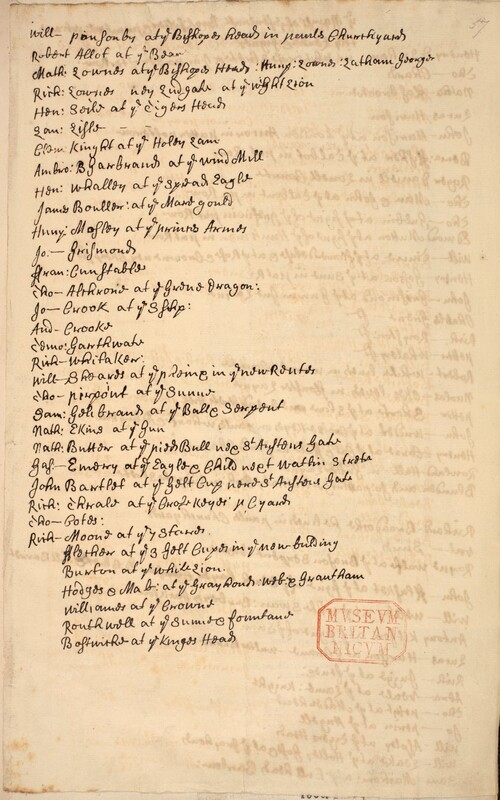 57
Will– ponsonby at yͤ Bishopes head in poules Churchyard
Robert Allot at yͤ Bear
Math: Lownes at yͤ Bishopes Head: Hump: Lownes: Latham George
Rich: Lownes ney Ludgate at yͤ whit Lion
Hen: Seile at yͤ Tigers Head
Lau: Lisle –
Clem: Kinght at yͤ Holey Lam
Ambro: Garbrand at yͤ wind Mill
Hen: whalley at yͤ Spread Eagle
James Bouller: at yͤ Maregould
Hump: Mosley at yͤ princes Armes
Jo– Grismond
Fran: Cunstable
Tho– Altkrone at yͤ Grene Dragon:
Jo– Crook at yͤ Ship:
And– Crooke
Timo: Garthwate
Rich– Whitaker:
Will– Sheares at yͤ in yͤ new Rentes
Tho– pierpoint at yͤ Sunne
Sam: Gelibrand at yͤ Ball & Serpent
Nath: Ekins at yͤ Gun
Nath: Butter at yͤ pied Bull nex Sᵗ Austens Gate
Gas– Emery at yͤ Eagle & Child next Watlin Strete
John Bartlet at yͤ Gelt Cup nere Sᵗ Austens Gate
Rich: Thrale at yͤ Crose Keyes p C yard
Tho– Cotes:
Rich– Moone at yͤ 7 Starres
Flecher at yͤ 3 Gelt Cupes in yͤ new bulding
Burton at yͤ whit Lion.
Hodges & Mab: at yͤ Gray hond: web: & Grantham
Williames at yͤ Crowne
Routhwell at yͤ Sunne & fountane
Bostwicke at yͤ Kinges Head
MVSEVM
BRITAN
NICVM